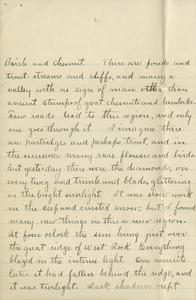 2
Birch and chesnut. There are ponds and
trout-streams and cliffs, and many a
valley with no sign of man other than
ancient stumps of great chesnuts and hemlocks.
Few roads lead to this region, and only
one goes through it. I imagine there
are partridges and perhaps trout, and in
the summer many rare flowers and birds.
But yesterday there were the diamonds, on
every twig and trunk and blade, glittering
in the bright sunlight. It was slow work
in the deep and crusted snow, but I found
many new things in this a new region.
At four oclock the sun hung just over
the great ridge of West Rock. Everything
blazed in the intense light. One minute
later it had fallen behind the ridge, and
it was twilight. Dark shadows crept